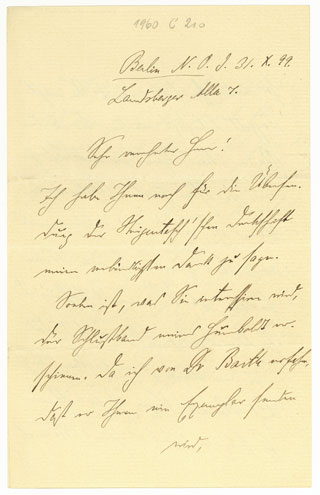 1960 C 210
Berlin N. O. d. 31. X. 99.
Landsberger Allee 7.
Sehr verehrter Herr!
Ich habe Ihnen noch für die Übersen-
dung der Steigentesch'schen Denkschrift
meinen verbindlichsten Dank zu sagen.
Soeben ist, was Sie interessiren wird,
der Schlußband meines Humboldt er-
schienen. Da ich von Dr Barth erfahre,
daß er Ihnen ein Exemplar senden
wird,